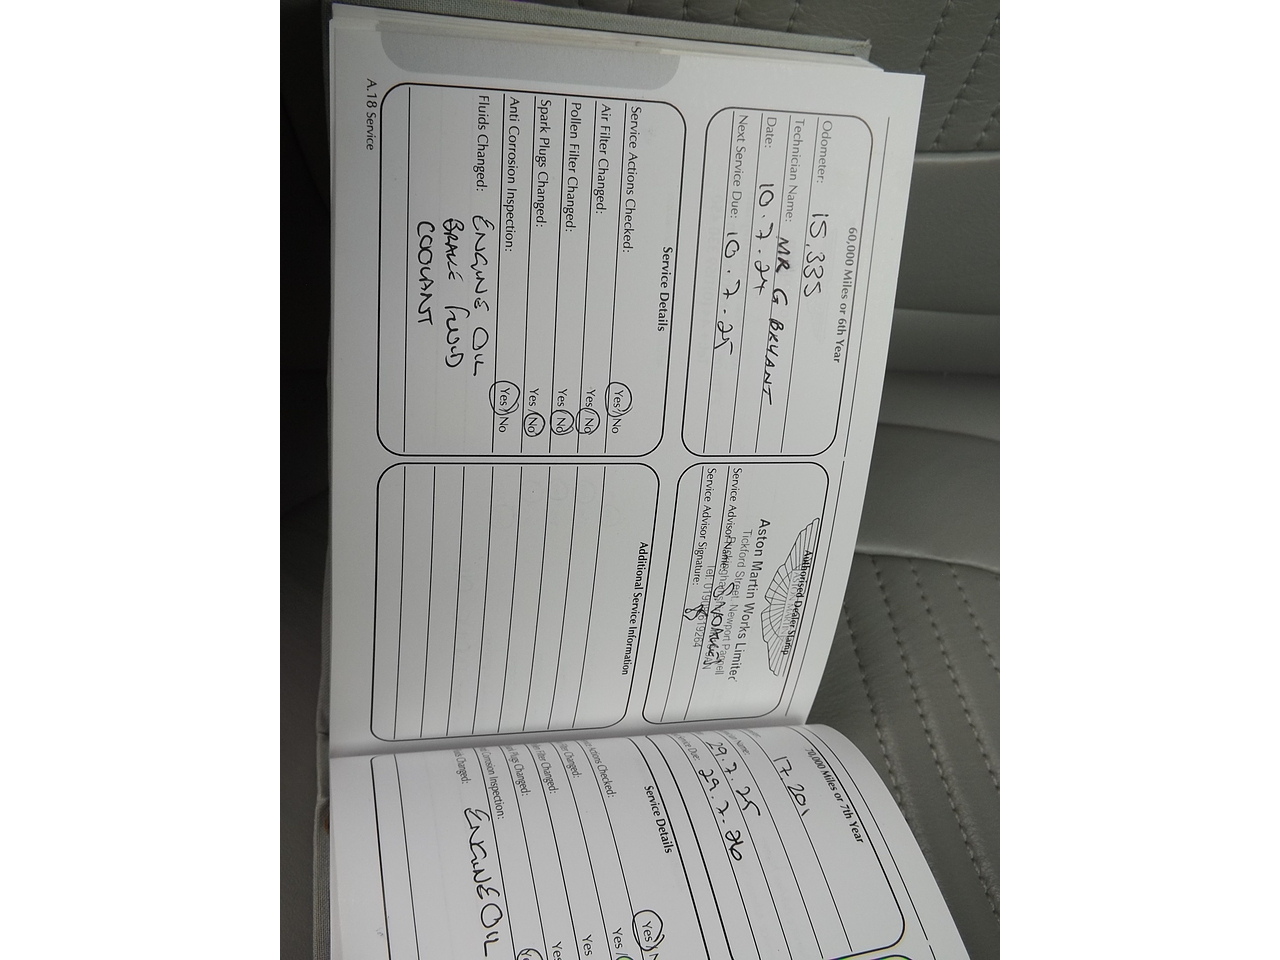 60,000 Miles or 6th Year
Odometer: 15,335
Technician Name: MR G BRYANT
Date: 10.7.24
Next Service Due: 10.7.25
Authorised Dealer Stamp
ASTON MARTIN
Aston Martin Works Limited
Tickford Street, Newport Pagnell
Service Advisor Name:
Tel: 619264
Service Advisor Signature:
Service Details
Service Actions Checked: Yes / No
Air Filter Changed: Yes / No
Pollen Filter Changed: Yes / No
Spark Plugs Changed: Yes / No
Anti Corrosion Inspection: Yes / No
Fluids Changed: ENGINE OIL
BRAKE FLUID
COOLANT
Additional Service Information
A.18 Service
70,000 Miles or 7th Year
17 201
Name:
29.7.25
Service Due: 29.7.26
Service Details
Actions Checked: Yes / N
Filter Changed: Yes /
Filter Changed: Yes
Plugs Changed: Yes
Corrosion Inspection: Ye
Changed: ENGINE OIL